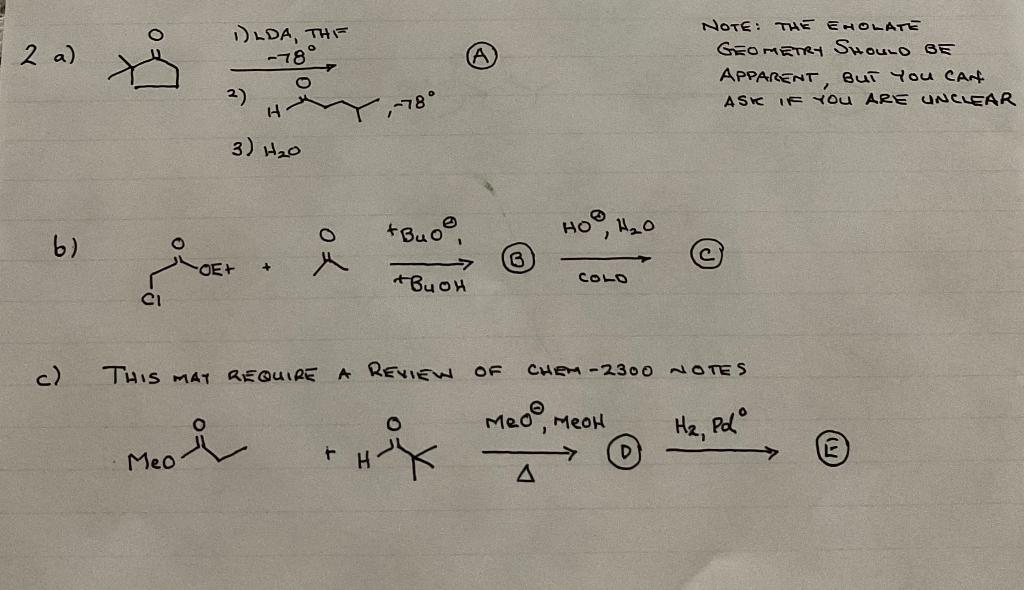 2 a)
O
1) LDA, THF
-78°
A
2)
O
H
, -78°
3) H2O
NOTE: THE ENOLATE
GEOMETRY SHOULD BE
APPARENT, BUT YOU CAN
ASK IF YOU ARE UNCLEAR
b)
O
OEt
Cl
+
O
tBuO⊖,
tBuOH
B
HO⊖, H2O
COLD
C
c) THIS MAY REQUIRE A REVIEW OF CHEM-2300 NOTES
O
MeO
+
O
H
MeO⊖, MeOH
Δ
D
H2, Pd°
E